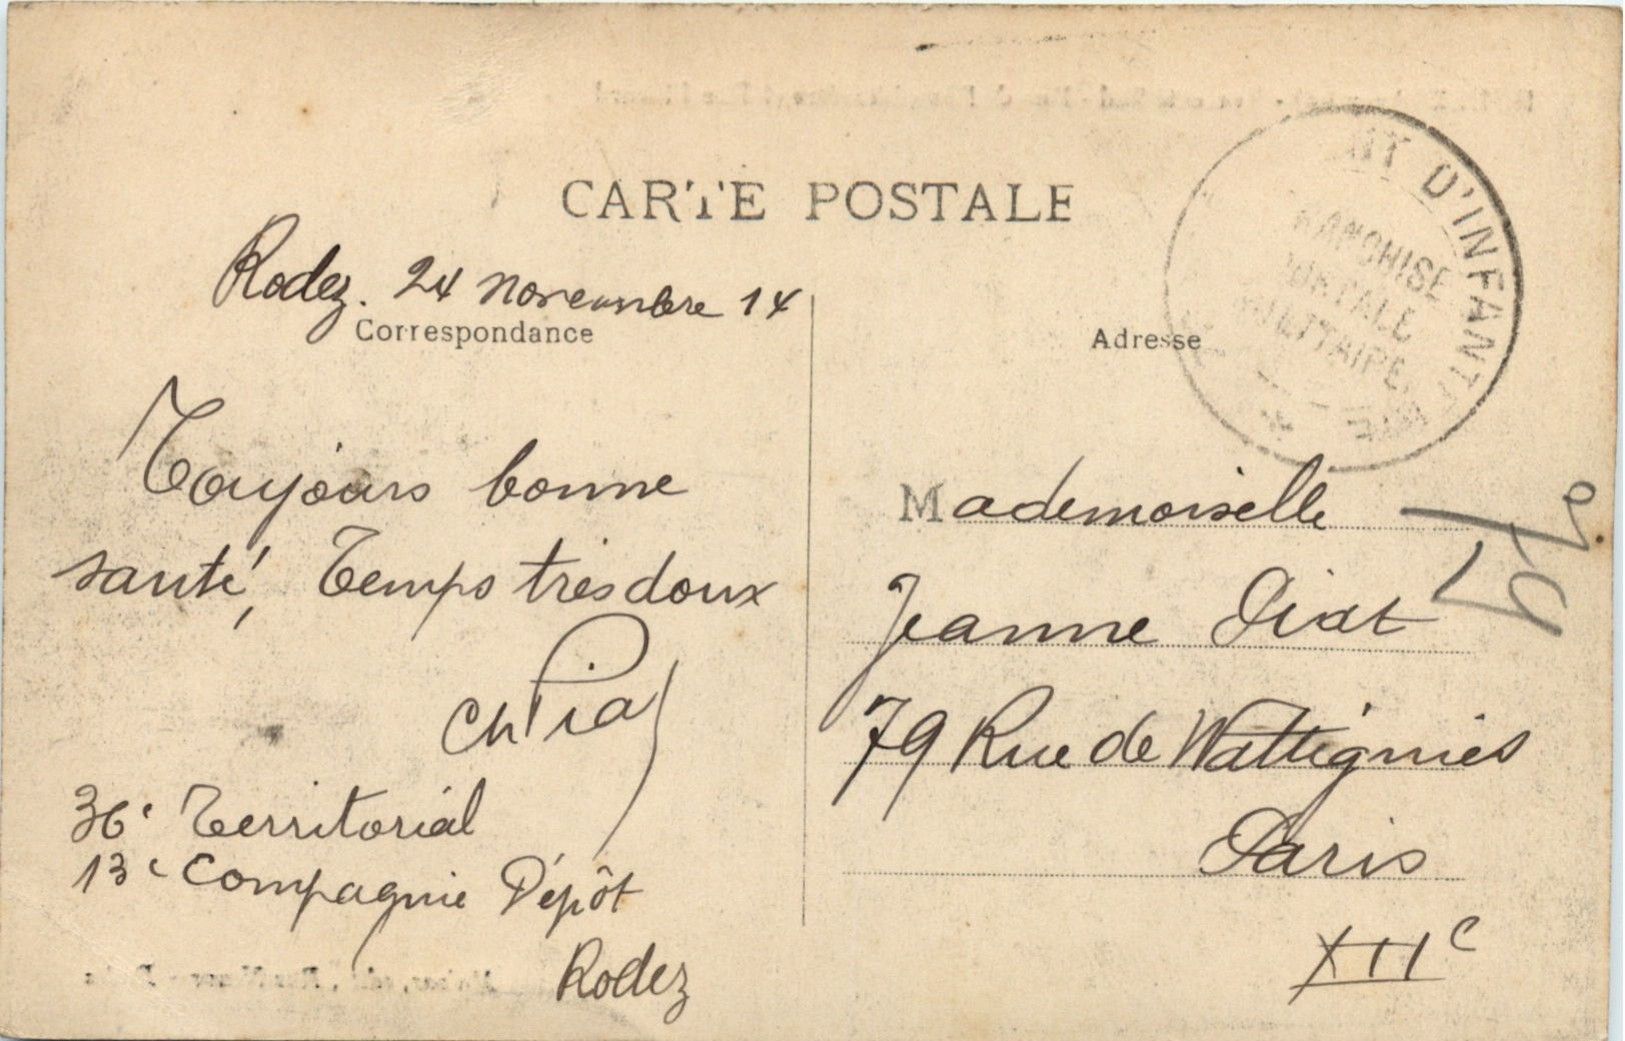 CARTE POSTALE
Rodez. 24 novembre 14
Correspondance
Toujours bonne
santé, Temps très doux
Ch Piat
36e Territorial
13e Compagnie Dépôt
Rodez
Adresse
Mademoiselle
Jeanne Piat
79 Rue de Wattignies
Paris
XIIe
D'INFANTERIE